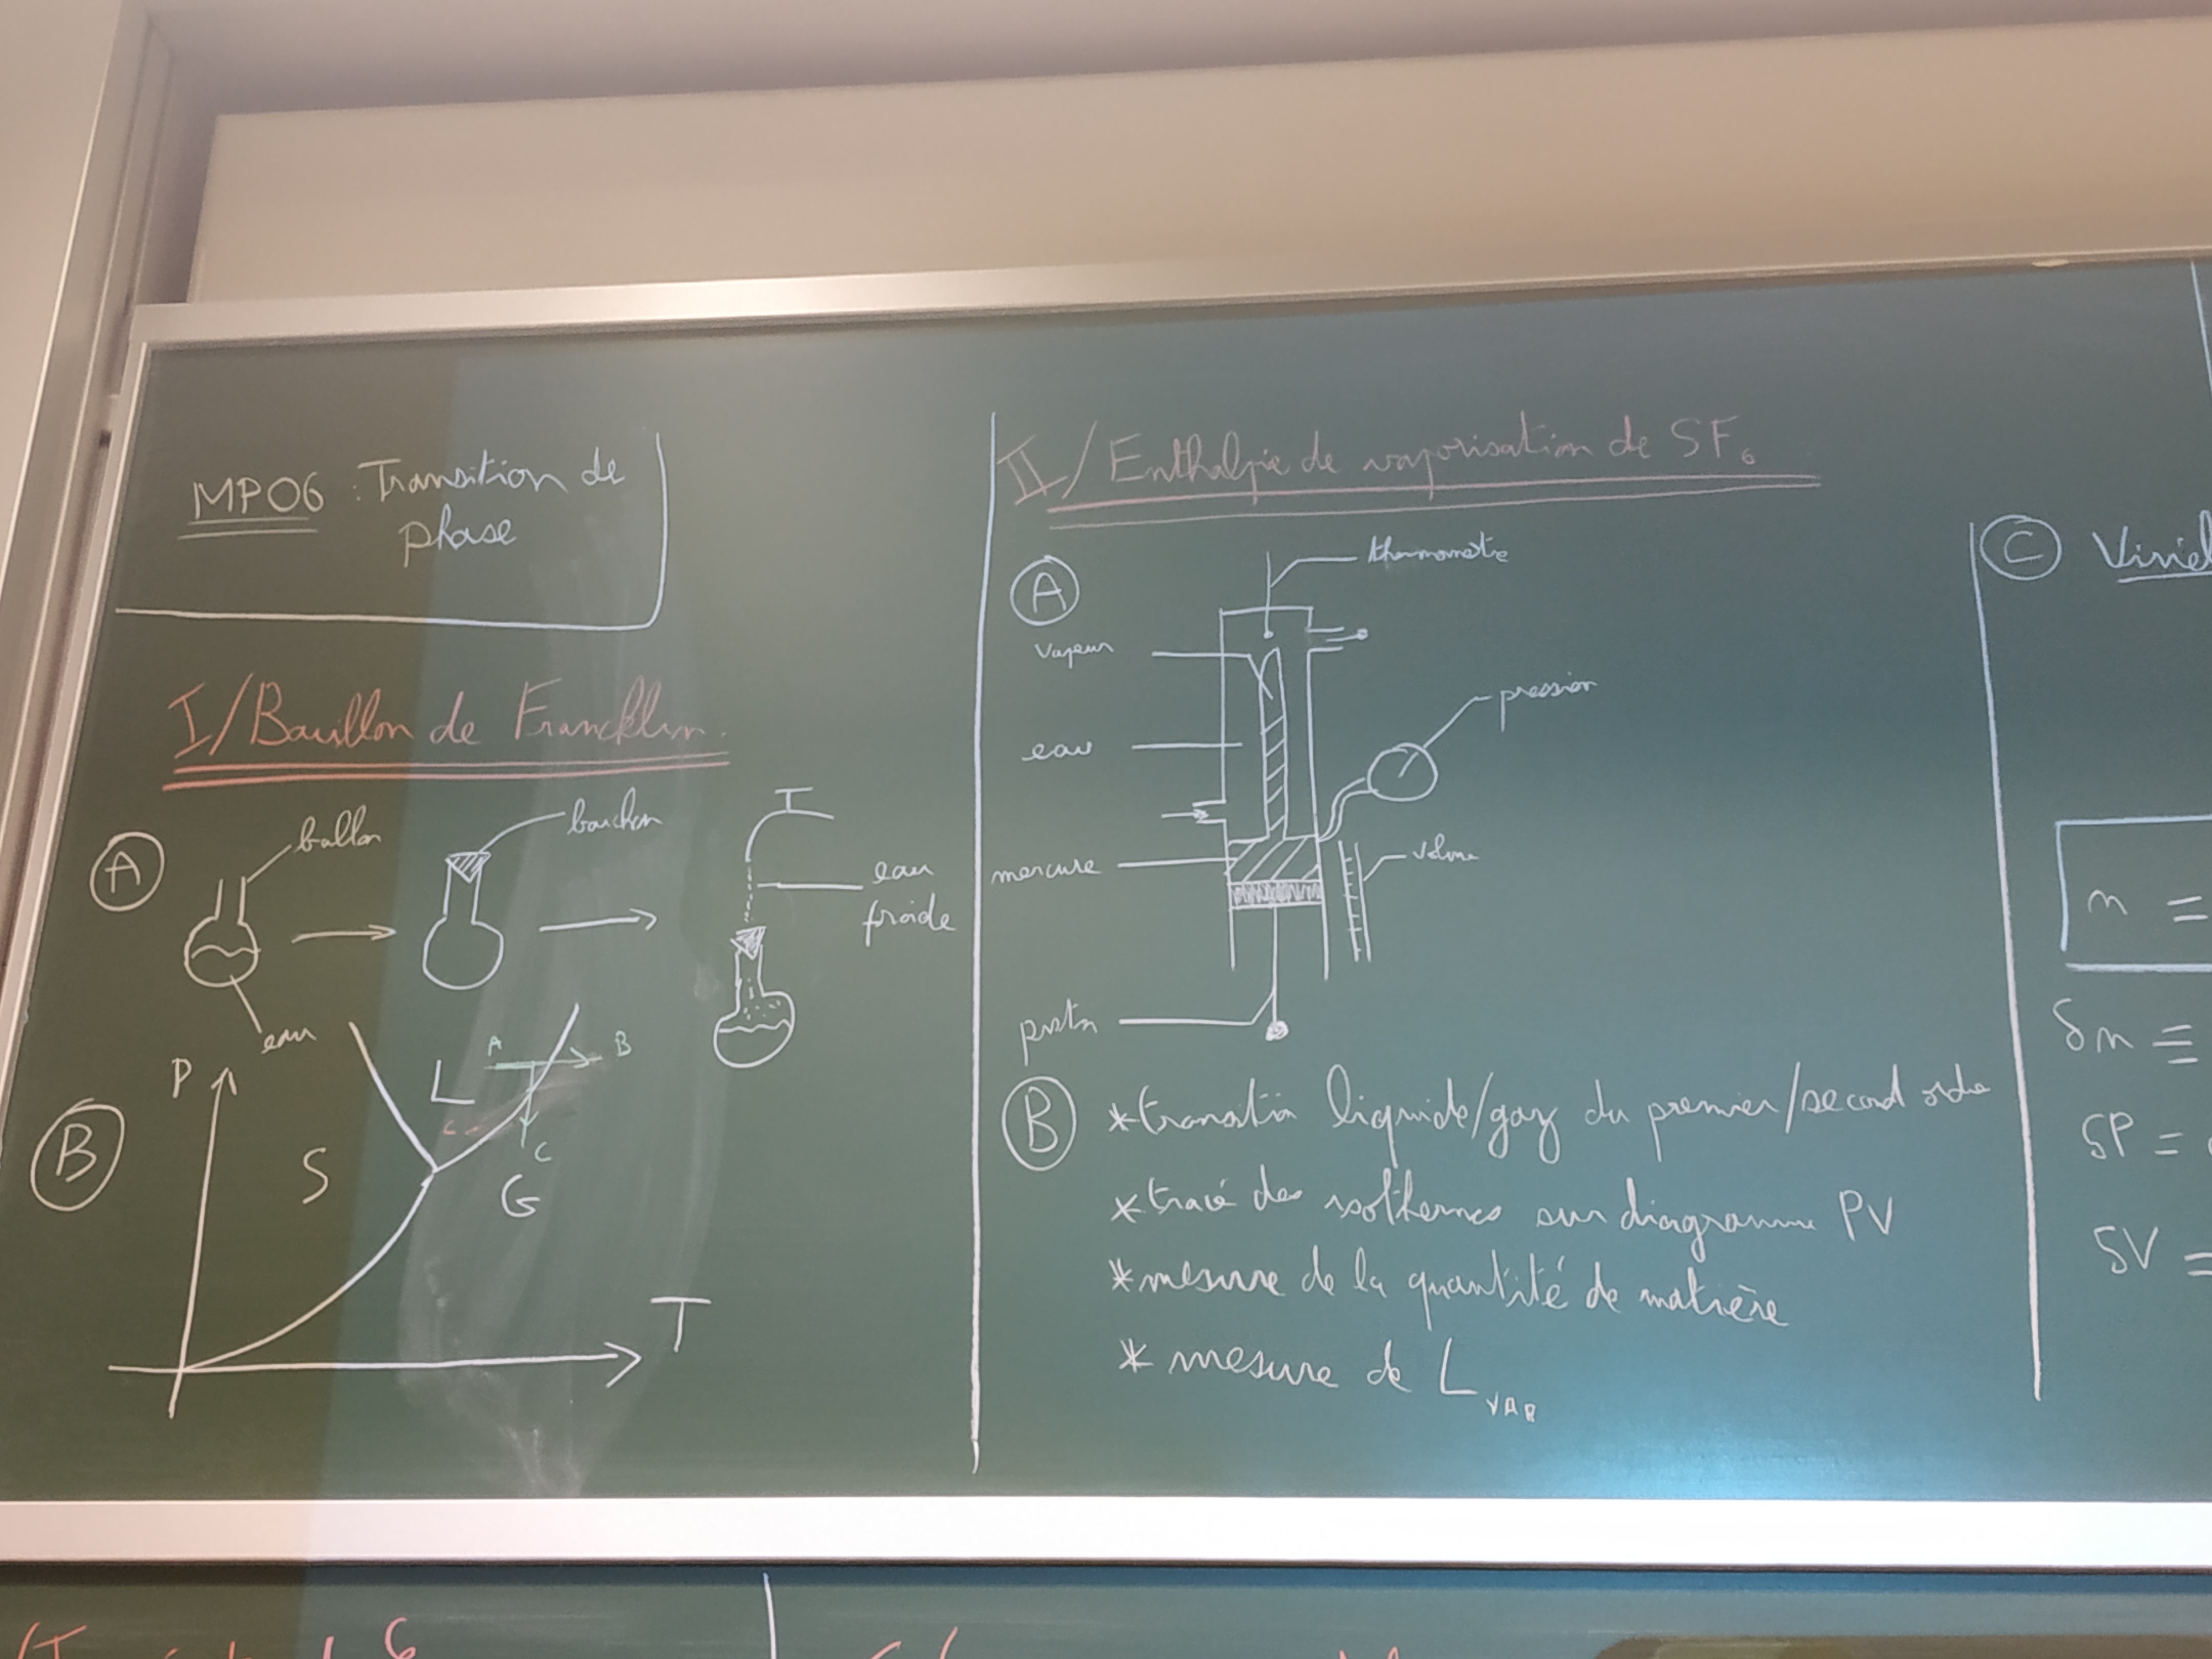 MP06 : Transition de
phase
I/ Bouillon de Francklin.
A
ballon
bouchon
eau
froide
eau
B
P
L
A
B
C
C
S
G
T
II/ Enthalpie de vaporisation de SF6
A
thermomètre
vapeur
pression
eau
volume
mercure
piston
B
* transition liquide/gaz du premier/second ordre
* tracé des isothermes sur diagramme PV
* mesure de la quantité de matière
* mesure de L VAP
C Viriel
n =
δn =
δP =
δV =